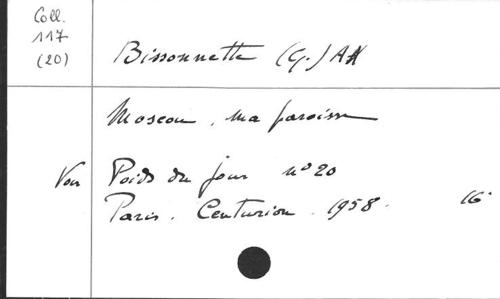 Coll.
117
(20)
Bissonnette (G.) AA
Moscou, ma paroisse
Voir Poids du jour n° 20
Paris. Centurion. 1958. 16°